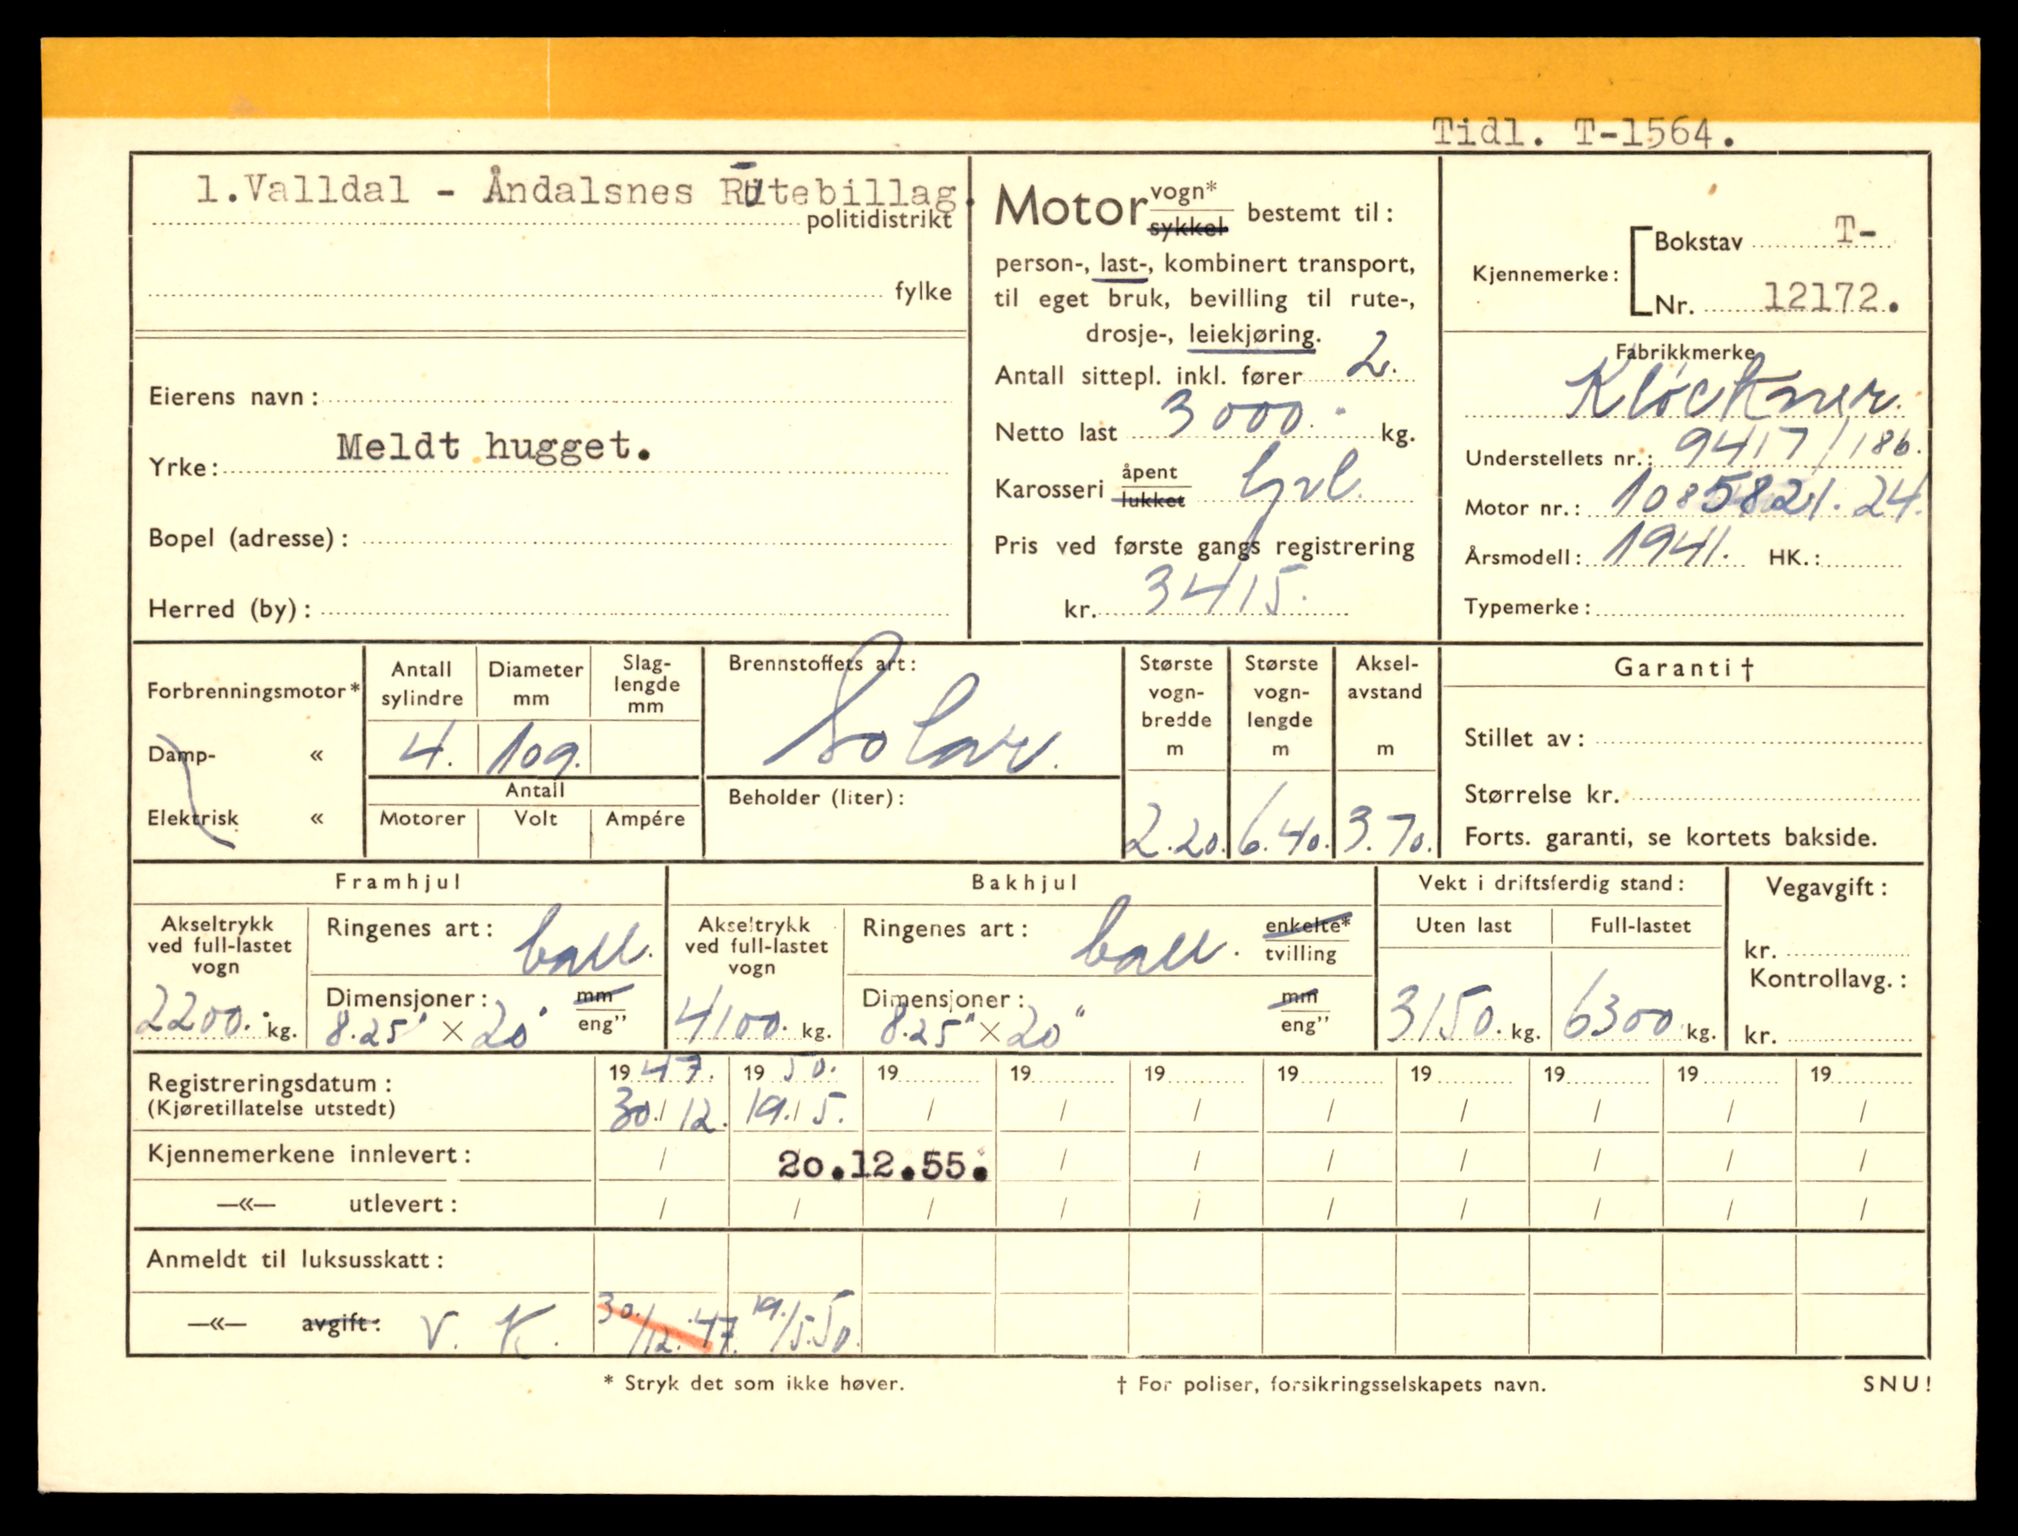 Tidl. T-1564.
1.Valldal - Åndalsnes Rutebillag.
politidistrikt
fylke
Eierens navn:
Meldt hugget.
Yrke:
Bopel (adresse):
Herred (by):
Motor vogn* sykkel bestemt til:
person-, last-, kombinert transport,
til eget bruk, bevilling til rute-,
drosje-, leiekjøring.
Antall sittepl. inkl. fører 2.
Netto last 3000. kg.
Karosseri åpent lukket
Pris ved første gangs registrering
kr. 3415.
Kjennemerke: Bokstav T-
Nr. 12172.
Fabrikkmerke
Kløckner.
Understellets nr.: 9417/186.
Motor nr.: 1085821.24.
Årsmodell: 1941. HK.:
Typemerke:
Forbrenningsmotor*
Damp- «
Elektrisk «
Antall sylindre
Diameter mm
Slag-lengde mm
4. 109.
Antall
Motorer Volt Ampére
Brennstoffets art:
Solar.
Beholder (liter):
Største vogn-bredde m
2.20.
Største vogn-lengde m
6.40.
Aksel-avstand m
3.70.
Garanti †
Stillet av:
Størrelse kr.
Forts. garanti, se kortets bakside.
Framhjul
Akseltrykk ved full-lastet vogn
2200. kg.
Ringenes art: ball.
Dimensjoner: mm eng"
8.25" × 20"
Bakhjul
Akseltrykk ved full-lastet vogn
4100. kg.
Ringenes art: ball. enkelte* tvilling
Dimensjoner: mm eng"
8.25" × 20"
Vekt i driftsferdig stand:
Uten last Full-lastet
3150. kg. 6300 kg.
Vegavgift:
kr.
Kontrollavg.:
kr.
Registreringsdatum: 1947. 1950. 19 19 19 19 19 19 19 19
(Kjøretillatelse utstedt) 30./12. 19./5. / / / / / / / /
Kjennemerkene innlevert: / 20.12.55. / / / / / / /
—«— utlevert: / / / / / / / / / /
Anmeldt til luksusskatt:
—«— avgift: V. K. 30./12.47. 19./5.50.
* Stryk det som ikke høver.
† For poliser, forsikringsselskapets navn.
SNU!